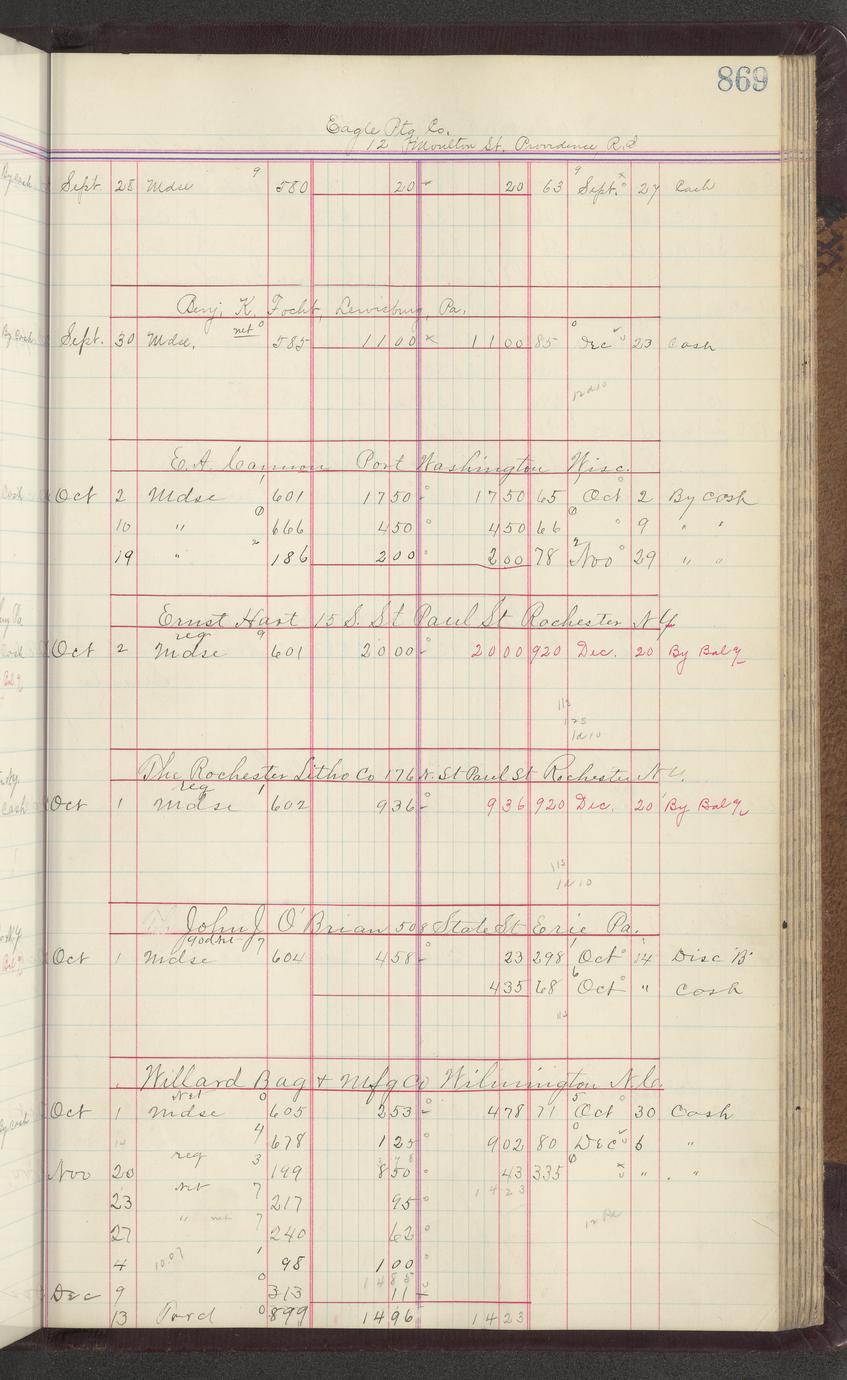 869
Eagle Ptg. Co.
12 Moulton St. Providence, R.I
Sept. 28 Mdse 9 580 20 20 63 9 Sept. 27 Cash
Benj. K. Focht, Lewisburg, Pa.
Sept. 30 Mdse, net 0 585 1100 x 1100 85 0 Dec 23 Cash
12210
E. A. Cannon Port Washington Wisc.
Oct 2 Mdse 1 601 1750 1750 65 Oct 2 By Cash
10 " 0 666 450 450 66 0 9 " "
19 " 2 186 200 200 78 2 Nov 29 " "
Ernst Hart 15 S. St Paul St Rochester N.Y.
Oct 2 Mdse reg 9 601 2000 2000 920 Dec. 20 By Bal
112
123
1210
The Rochester Litho Co 176 N. St Paul St Rochester N.Y.
Oct 1 Mdse reg 1 602 936 936 920 Dec. 20 By Bal
113
1210
John J O'Brian 508 State St Erie Pa.
Oct 1 Mdse 7 604 458 23 298 1 Oct 14 Disc "B"
435 68 6 Oct " Cash
112
Willard Bag & Mfg Co Wilmington N.C.
Oct 1 Mdse Net 0 605 253 478 71 5 Oct 30 Cash
10 4 678 125 902 80 0 Dec 6 "
378
Nov 20 reg 3 199 850 43 335 6 " "
1423
23 net 7 217 95
27 " net 7 240 62
4 10.07 1 98 100
1485
Dec 9 0 313 11
13 Ford 0 899 1496 1423